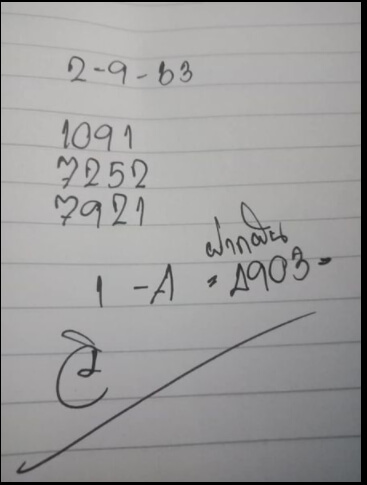 2-9-63
1091
7252
7921
ฝากฝัน
1 - A = 1903 -